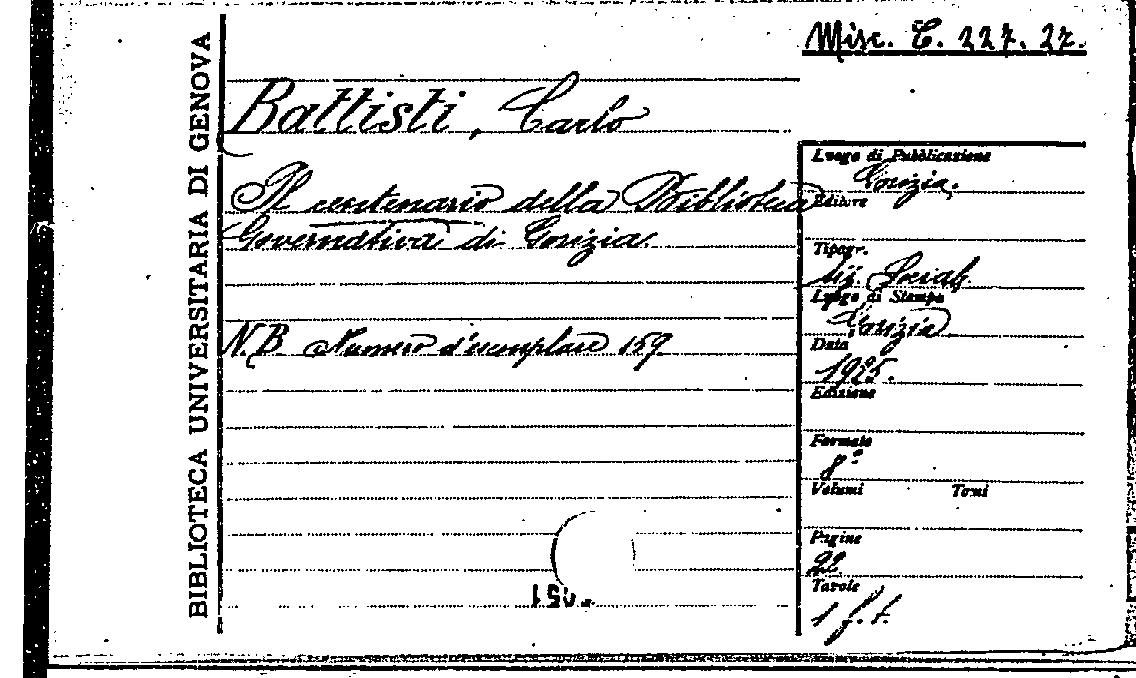 BIBLIOTECA UNIVERSITARIA DI GENOVA
Misc. C. 227. 27.
Battisti, Carlo
Il centenario della Biblioteca
Governativa di Gorizia.
N.B. Numero d'esemplare 159
Luogo di Pubblicazione
Gorizia.
Editore
Tipogr.
tip. Sociale
Luogo di Stampa
Gorizia
Data
1925.
Edizione
Formato
8°
Volumi Tomi
Pagine
22
Tavole
1 f.t.